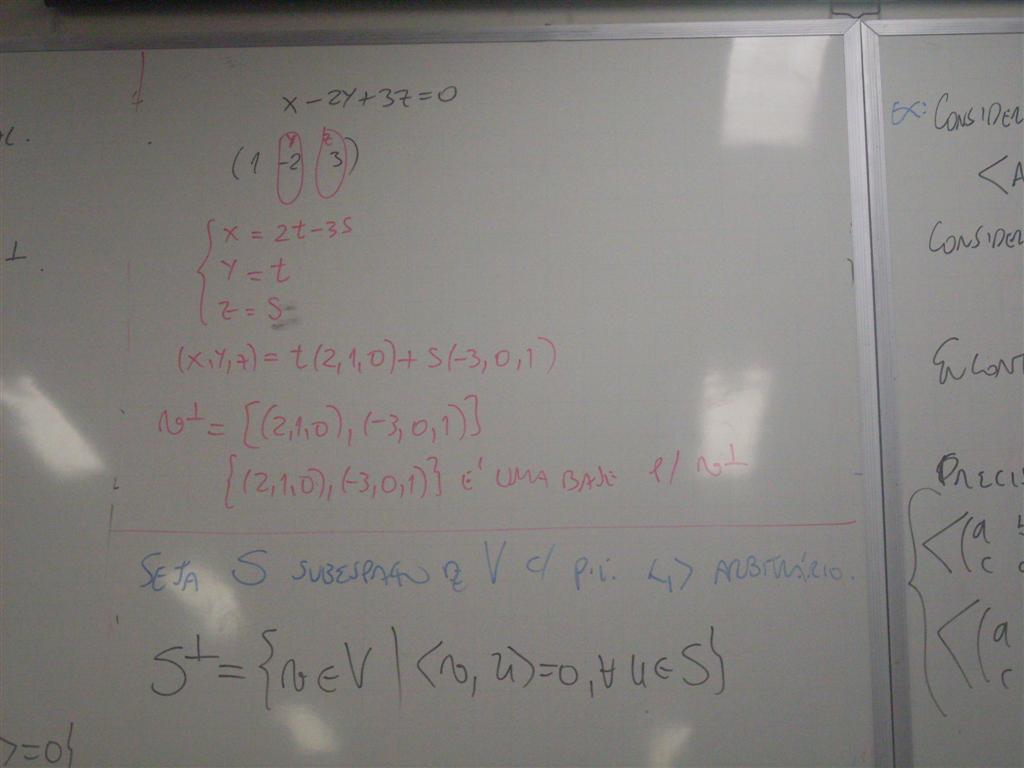 x - 2y + 3z = 0
y z
(1 -2 3)
{ x = 2t - 3s
y = t
z = s
(x, y, z) = t(2,1,0) + s(-3,0,1)
v⊥ = [(2,1,0), (-3,0,1)]
{(2,1,0), (-3,0,1)} É UMA BASE P/ v⊥
SEJA S SUBESPAÇO DE V C/ p.i. <,> ARBITRÁRIO.
S⊥ = {v ∈ V | <v, u> = 0, ∀ u ∈ S}
⊥
>=0}
EX: CONSIDER
<A
CONSIDER
ENCONT
PRECIS
<(a
c
<(a
c